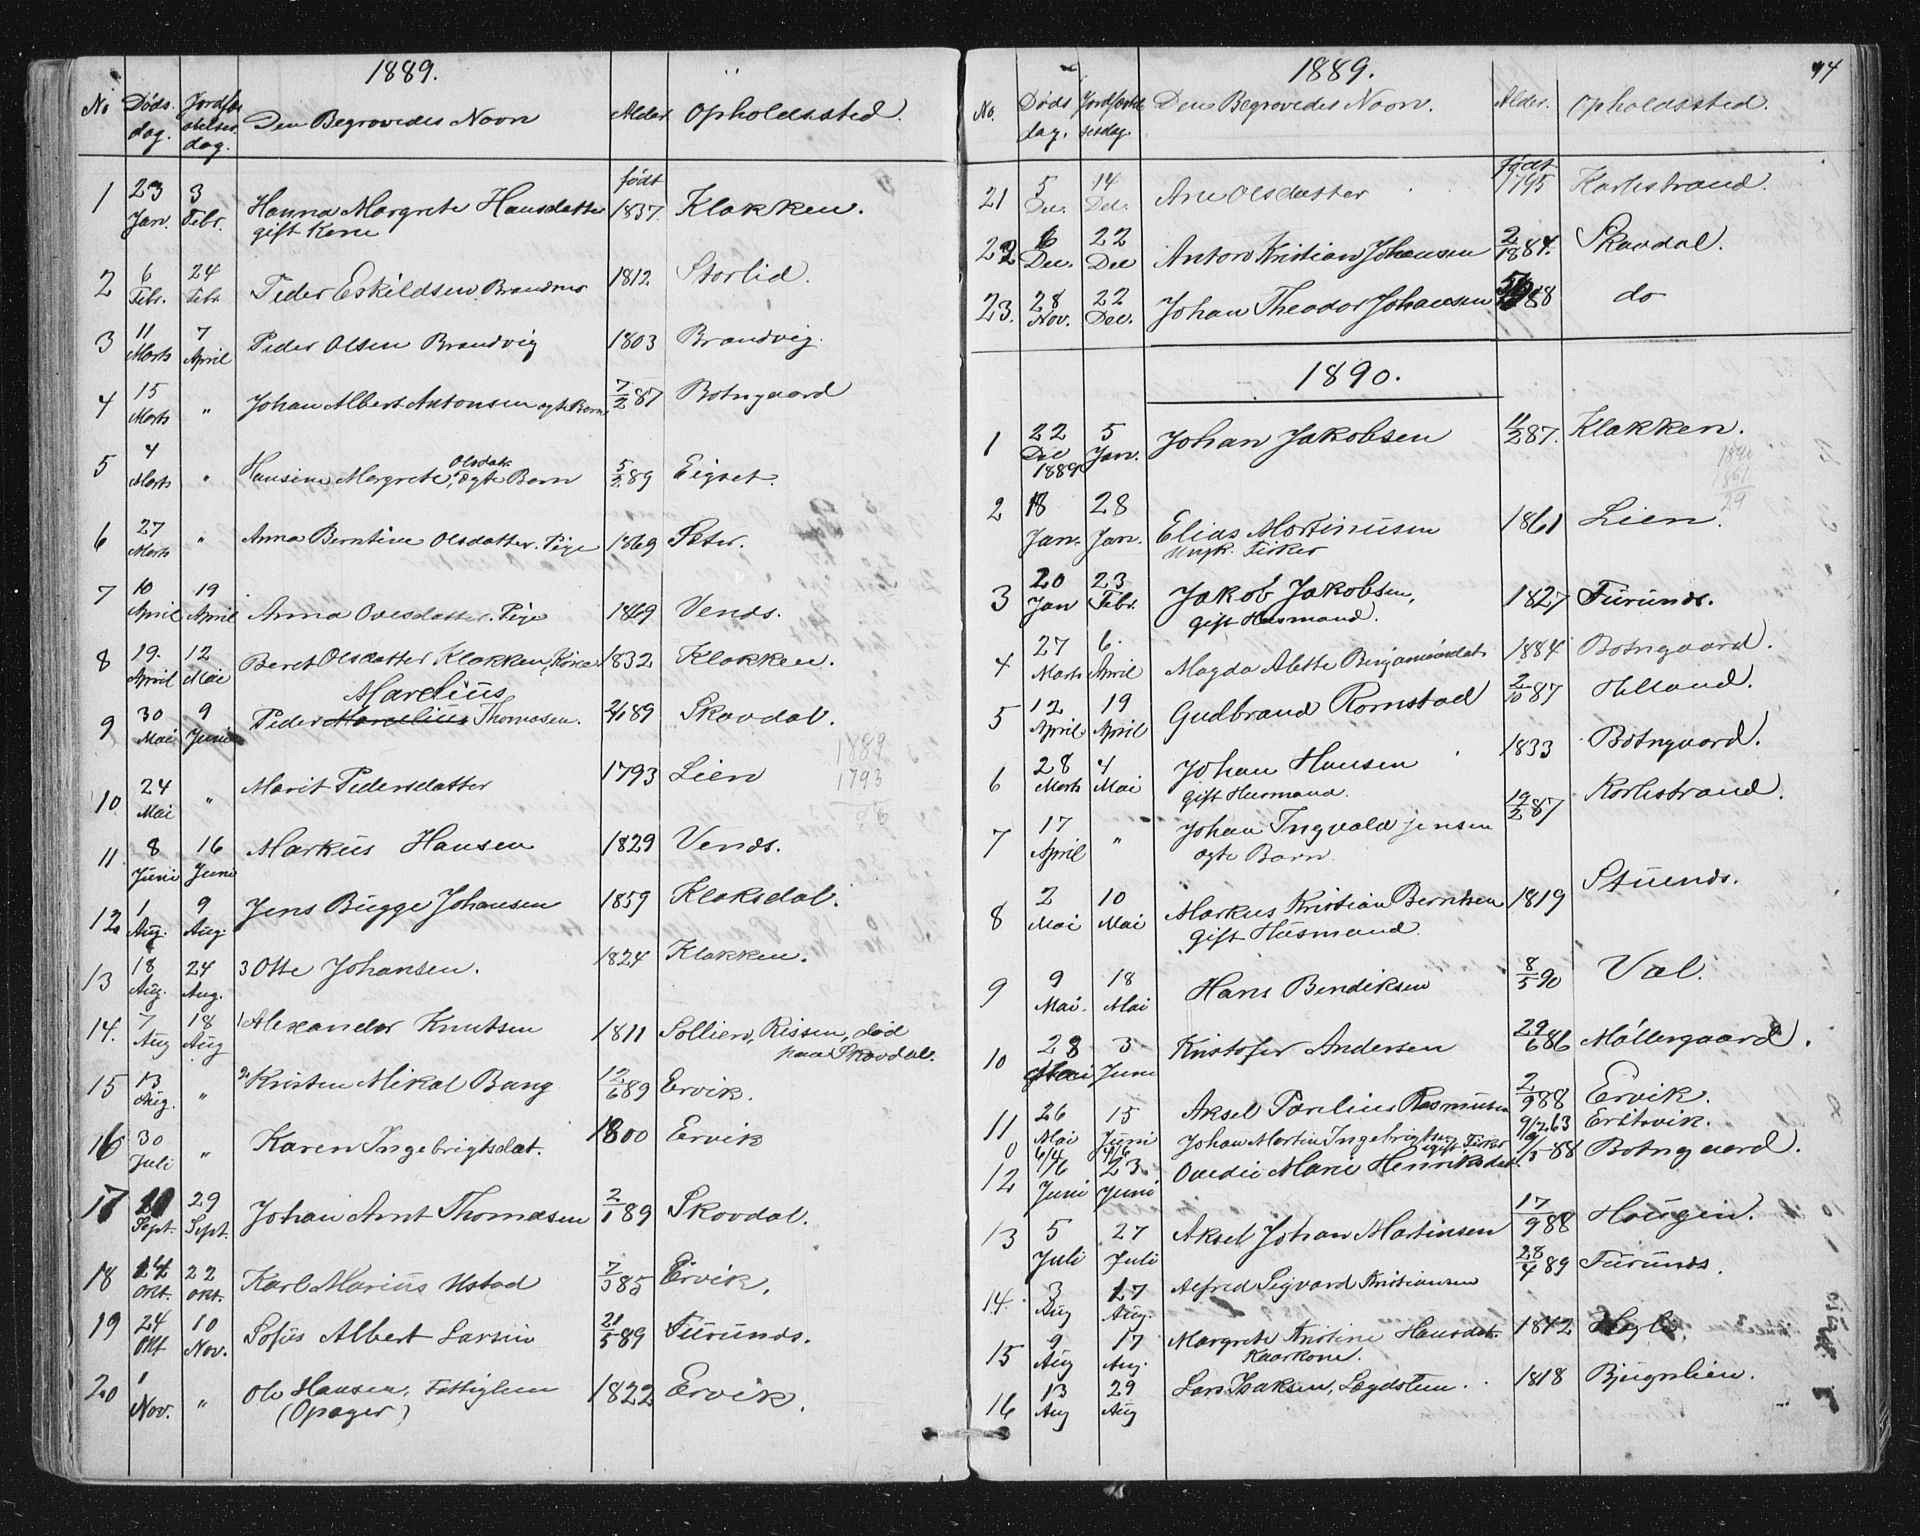 1889.
No Døds dag. Jordfæstelses dag. Den Begravedes Navn Alder. Opholdssted.
1 23 Jan. 3 Febr. Hanna Margrete Hansdatter født 1837. Klakken.
gift Kone
2 6 Febr. 24 Febr. Peder Eskildsen 1812 Storlid.
3 11 Marts 7 April Peder Olsen Brandvig 1803 Brandvig.
4 15 Marts " Johan Albert Antonsen ægte Barn 7/2 87 Botngaard
5 4 Marts " Hansine Margrete Olsdatr. ægte Barn 5/2 89 Eigset.
6 27 Marts " Anna Berntine Olsdatter. Pige 1869 Seter.
7 10 April 19 April Anna Ovesdatter. Pige 1869 Vends.
8 19. April 12 Mai Beret Olsdatter Klakken, Kone 1832 Klakken.
Marelius
9 30 Mai 9 Juni Peder Marcelius Thomasen. 2/1 89 Skavdal.
1889
10. 24 Mai " Marit Pedersdatter 1793 Lien 1793
96
11. 8 Juni 16 Juni Markus Hansen 1829 Vends.
12. 1 Aug. 9 Aug. Jens Bugge Johansen 1859 Klaksdal.
13 18 Aug. 24 Aug. 3 Otte Johansen. 1824 Klakken.
14. 7 Aug 18 Aug 1 Alexander Knutsen 1811 Sollien, Rissen, død
paa Skavdal.
15 13 Aug. " 2 Kristen Mikal Bang 12/6 89 Ervik.
16 30 Juli " Karen Ingebrigtsdat. 1800 Ervik
17 Sept. 29 Sept. Johan Arnt Thomasen 2/1 89 Skavdal.
18 Okt. 22 Okt. Karl Marius Ustad 7/3 85 Ervik.
19 24 Okt 10 Nov. Sofus Albert Larsen 21/5 89 Furunds.
20 1 Nov. " Ole Hansen, Fattiglem 1822 Ervik.
(Opager)
94
1889.
No. Døds dag. Jordfæstelsesdag. Den Begravedes Navn. Alder. Opholdssted.
21 5 Dec. 14 Dec. Ane Olsdatter født 1795 Karlestrand.
22 6 Dec. 22 Dec Anton Kristian Johansen 2/1 884. Skavdal.
23. 28 Nov. 22 Dec. Johan Theodor Johansen 88 do
1890.
1 22 Dec 1889 5 Jan. Johan Jakobsen 11/2 87. Klakken.
1890
1861
29
2 18 Jan. 28 Jan. Elias Martinusen 1861 Lien.
Ungk. Fisker
3 20 Jan 23 Febr. Jakob Jakobsen, 1827 Furunds.
gift Husmand.
4 27 Marts 6 April Magda Alette Benjaminsdat. 1884 Botngaard.
5 12 April 19 April Gudbrand Romstad 2/10 87 Helland.
6 28 Marts 4 Mai Johan Hansen 1833 Botngaard.
gift Husmand.
7 17 April " Johan Ingvald Jensen 19/2 87 Karlestrand.
ægte Barn
8 2 Mai 10 Mai Markus Kristian Berntsen 1819 Stuends.
gift Husmand.
9 9 Mai. 18 Mai Hans Bendiksen 8/5 90 Val.
10 28 Mai 3 Juni Kristofer Andersen 29/6 86 Møllergaard.
11 26 Mai 15 Juni Aksel Parelius Rasmusen 2/9 88 Ervik.
0 6/4 4/6 Johan Martin Ingebrigtsen gift Fisker 9/2 63
12 Juni 23 Juni Ovedie Marie Henriksdat. 88 Botngaard.
13 5 Juli 27 Juli Aksel Johan Martinsen 17/9 88 Haugen.
14. 3 Aug 17 Aug. Alfred Sigvard Kristiansen 28/4 89 Furunds.
15 9 Aug 17 Aug. Margrete Kristine Hansdat. 1812
Kaarkone.
16 13 Aug 29 Aug Lars Isaksen, Lægdslem. 1818 Bjugnlien.